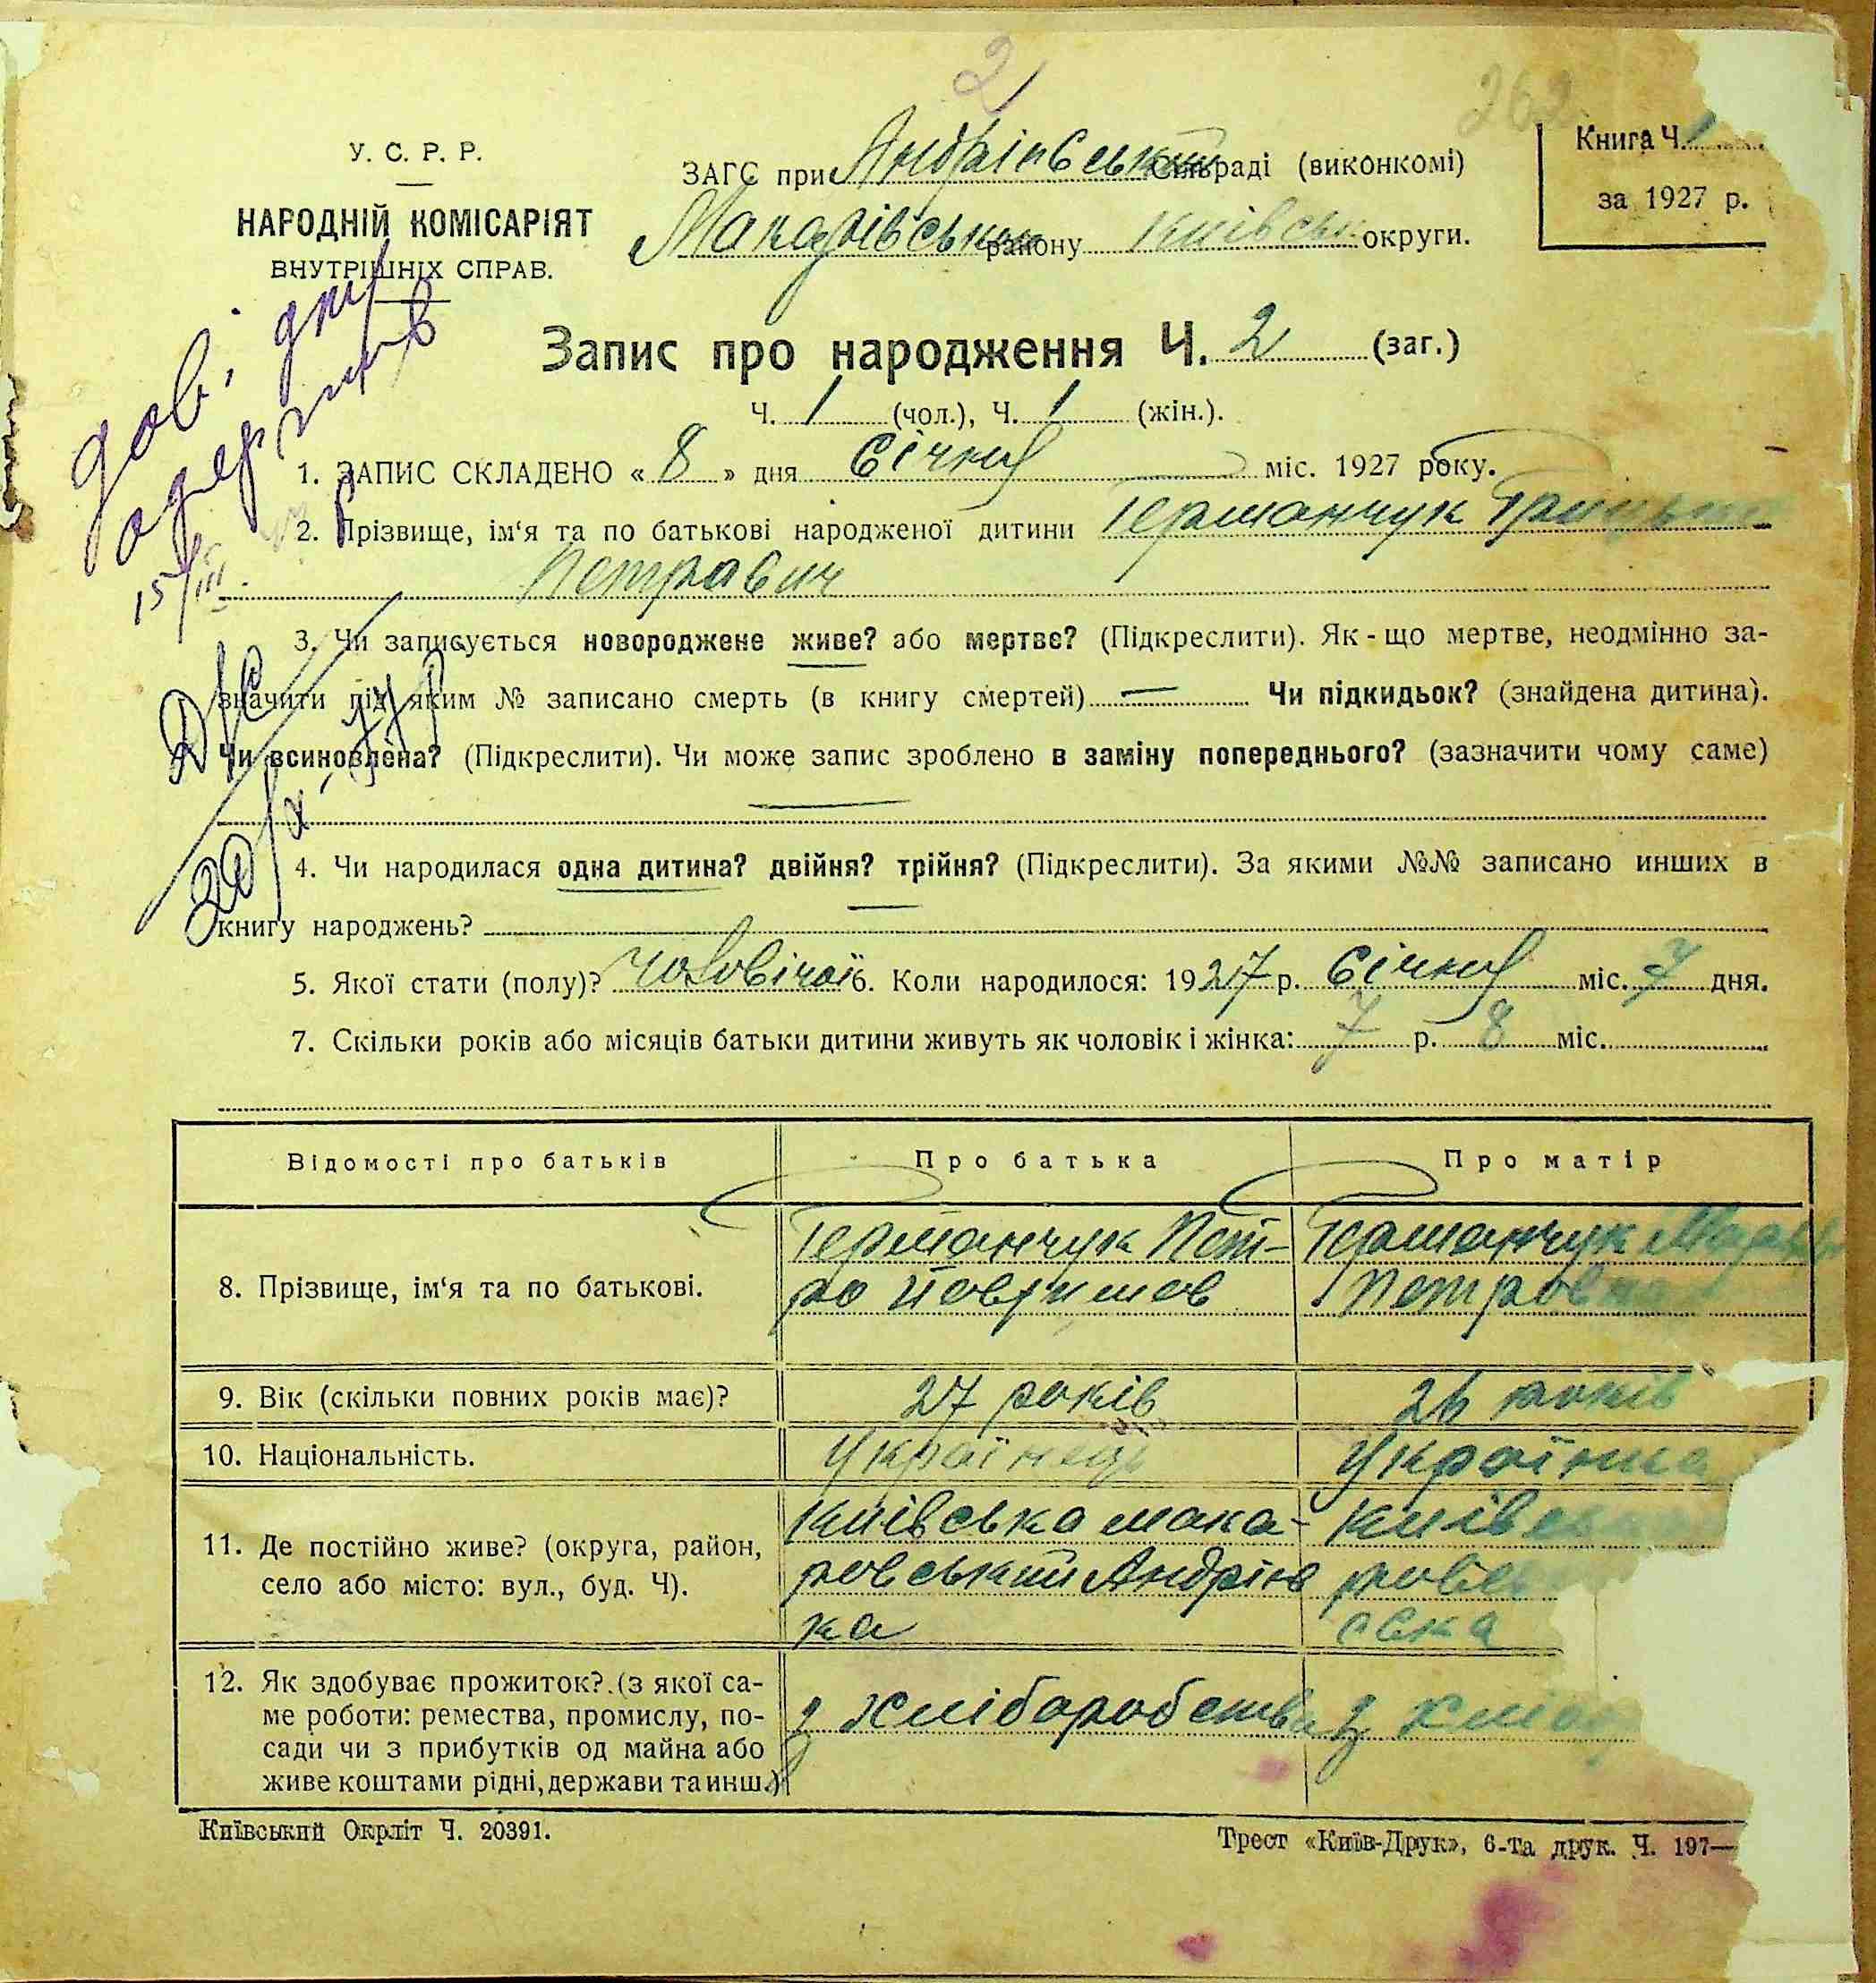 2
262
У. С. Р. Р.
НАРОДНІЙ КОМІСАРІЯТ
ВНУТРІШНІХ СПРАВ.
ЗАГС при Андріївській сільраді (виконкомі)
Макарівськ району Київськ округи.
Книга Ч. 1
за 1927 р.
Запис про народження Ч. 2 (заг.)
Ч. 1 (чол.), Ч. 1 (жін.).
1. ЗАПИС СКЛАДЕНО « 8 » дня Січня міс. 1927 року.
2. Прізвище, ім‘я та по батькові народженої дитини Германчук Грицько
Петрович
3. Чи записується новороджене живе? або мертве? (Підкреслити). Як - що мертве, неодмінно за-
значити під яким № записано смерть (в книгу смертей) — Чи підкидьок? (знайдена дитина).
Чи всиновлена? (Підкреслити). Чи може запис зроблено в заміну попереднього? (зазначити чому саме)
4. Чи народилася одна дитина? двійня? трійня? (Підкреслити). За якими №№ записано инших в
книгу народжень?
5. Якої стати (полу)? Чоловічої 6. Коли народилося: 1927 р. Січня міс. 7 дня.
7. Скільки років або місяців батьки дитини живуть як чоловік і жінка: 7 р. 8 міс.
Відомості про батьків Про батька Про матір
8. Прізвище, ім‘я та по батькові.
Германчук Пет-
ро
Германчук
Петровна
9. Вік (скільки повних років має)? 27 років 26 років
10. Національність. Українець Українка
11. Де постійно живе? (округа, район,
село або місто: вул., буд. Ч).
Київська мака-
ровський Андріів
ка
Київськ
12. Як здобуває прожиток? (з якої са-
ме роботи: ремества, промислу, по-
сади чи з прибутків од майна або
живе коштами рідні, держави та инш.)
з хліборобства
з хлібо
Київський Окрліт Ч. 20391.
Трест «Київ-Друк», 6-та друк. Ч. 197—
дов. дня
одержив
15/III